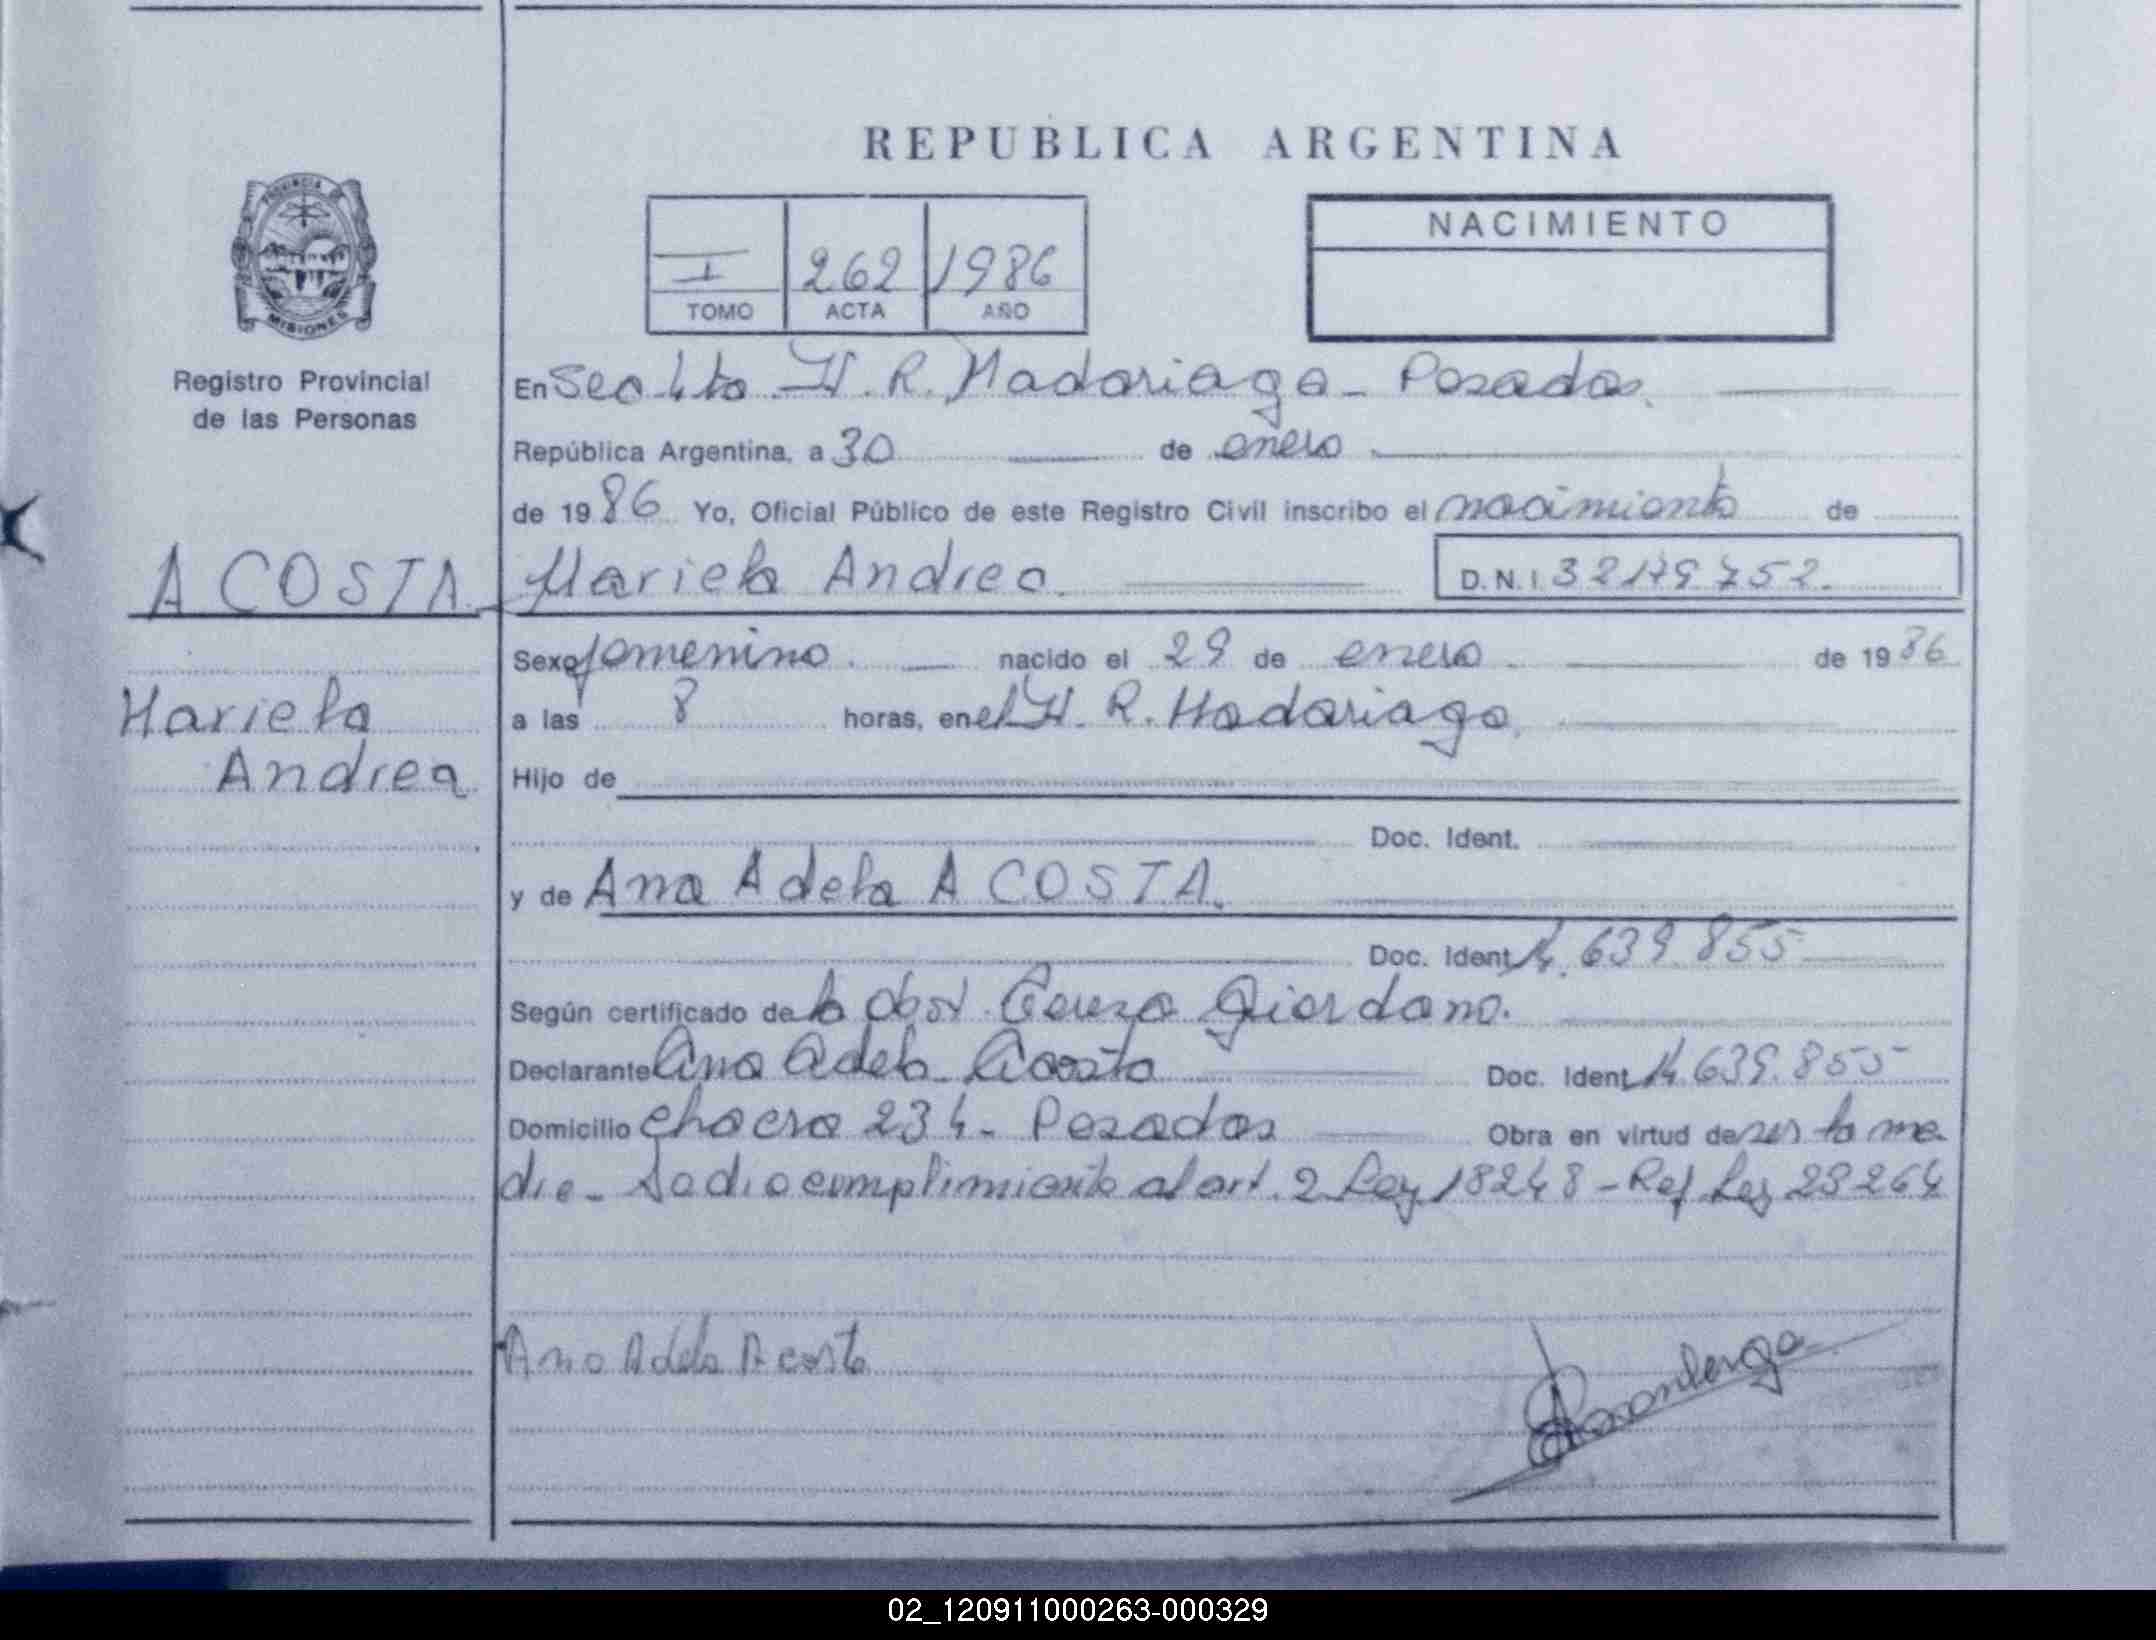 REPUBLICA ARGENTINA
PROVINCIA DE
MISIONES
Registro Provincial
de las Personas
I 262 1986
TOMO ACTA AÑO
NACIMIENTO
En H. R. Madariaga - Posadas.
República Argentina, a 30 de enero
de 1986 Yo, Oficial Público de este Registro Civil inscribo el nacimiento de
ACOSTA Mariela Andrea. D.N.I. 32179752.
Sexo femenino. nacido el 29 de enero. de 1986
Mariela
Andrea
a las 8 horas, en el H. R. Madariaga.
Hijo de
Doc. Ident.
y de Ana Adela ACOSTA.
Doc. Ident. 14.639.855
Según certificado de la obst. Giordano.
Declarante Ana Adela Acosta Doc. Ident. 14.639.855
Domicilio chacra 234 - Posadas Obra en virtud de ser la ma
dre - Se dio cumplimiento al art. 2 Ley 18248 - Ref Ley 23264
Ana Adela Acosta
02_120911000263-000329